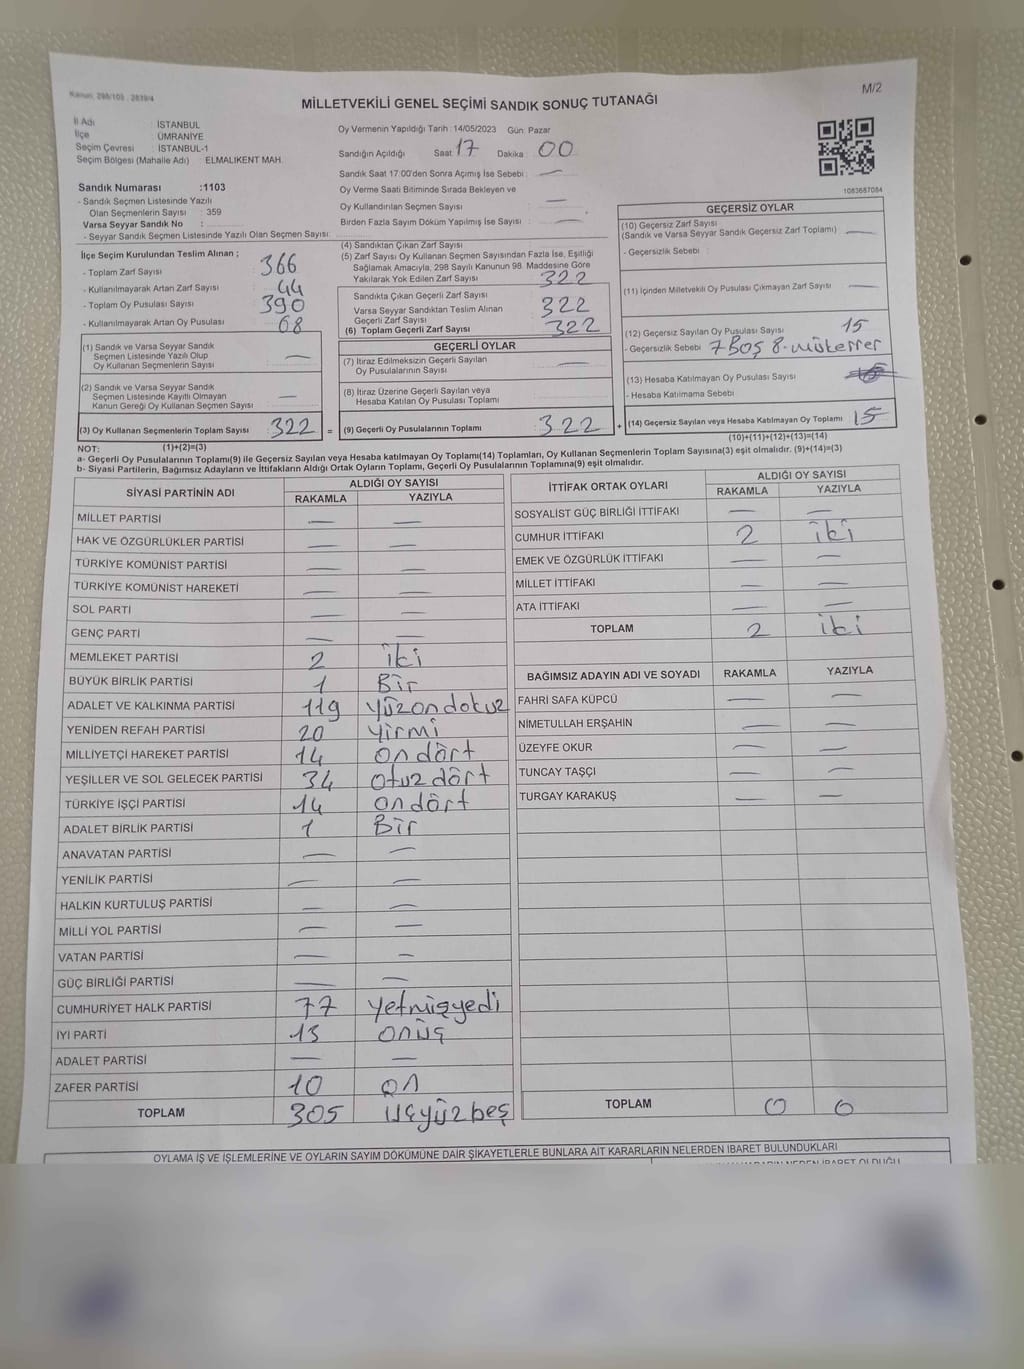 Kanun: 298/105 , 2839/4
M/2
MİLLETVEKİLİ GENEL SEÇİMİ SANDIK SONUÇ TUTANAĞI
İl Adı : İSTANBUL
İlçe : ÜMRANİYE
Seçim Çevresi : İSTANBUL-1
Seçim Bölgesi (Mahalle Adı) : ELMALIKENT MAH.
Oy Vermenin Yapıldığı Tarih :14/05/2023 Gün: Pazar
Sandığın Açıldığı Saat: 17 Dakika: 00
Sandık Saat 17.00'den Sonra Açımış İse Sebebi : —
Oy Verme Saati Bitiminde Sırada Bekleyen ve
Oy Kullandırılan Seçmen Sayısı —
Birden Fazla Sayım Döküm Yapılmış İse Sayısı : —
1083687084
Sandık Numarası :1103
- Sandık Seçmen Listesinde Yazılı
Olan Seçmenlerin Sayısı : 359
Varsa Seyyar Sandık No :
- Seyyar Sandık Seçmen Listesinde Yazılı Olan Seçmen Sayısı:
İlçe Seçim Kurulundan Teslim Alınan ;
- Toplam Zarf Sayısı 366
- Kullanılmayarak Artan Zarf Sayısı 44
- Toplam Oy Pusulası Sayısı 390
- Kullanılmayarak Artan Oy Pusulası 68
(1) Sandık ve Varsa Seyyar Sandık
Seçmen Listesinde Yazılı Olup
Oy Kullanan Seçmenlerin Sayısı —
(2) Sandık ve Varsa Seyyar Sandık
Seçmen Listesinde Kayıtlı Olmayan
Kanun Gereği Oy Kullanan Seçmen Sayısı : —
(3) Oy Kullanan Seçmenlerin Toplam Sayısı : 322 =
(4) Sandıktan Çıkan Zarf Sayısı
(5) Zarf Sayısı Oy Kullanan Seçmen Sayısından Fazla İse, Eşitliği
Sağlamak Amacıyla, 298 Sayılı Kanunun 98. Maddesine Göre
Yakılarak Yok Edilen Zarf Sayısı 322
Sandıkta Çıkan Geçerli Zarf Sayısı
Varsa Seyyar Sandıktan Teslim Alınan 322
Geçerli Zarf Sayısı
(6) Toplam Geçerli Zarf Sayısı 322
GEÇERLİ OYLAR
(7) İtiraz Edilmeksizin Geçerli Sayılan
Oy Pusulalarının Sayısı —
(8) İtiraz Üzerine Geçerli Sayılan veya
Hesaba Katılan Oy Pusulası Toplamı
(9) Geçerli Oy Pusulalarının Toplamı : 322 +
GEÇERSİZ OYLAR
(10) Geçersiz Zarf Sayısı
(Sandık ve Varsa Seyyar Sandık Geçersiz Zarf Toplamı) —
- Geçersizlik Sebebi :
(11) İçinden Milletvekili Oy Pusulası Çıkmayan Zarf Sayısı —
(12) Geçersiz Sayılan Oy Pusulası Sayısı 15
- Geçersizlik Sebebi 7 Boş 8. mükerrer
(13) Hesaba Katılmayan Oy Pusulası Sayısı
- Hesaba Katılmama Sebebi
(14) Geçersiz Sayılan veya Hesaba Katılmayan Oy Toplamı 15
NOT: (1)+(2)=(3)
(10)+(11)+(12)+(13)=(14)
a- Geçerli Oy Pusulalarının Toplamı(9) ile Geçersiz Sayılan veya Hesaba Katılmayan Oy Toplamı(14) Toplamları, Oy Kullanan Seçmenlerin Toplam Sayısına(3) eşit olmalıdır. (9)+(14)=(3)
b- Siyasi Partilerin, Bağımsız Adayların ve İttifakların Aldığı Ortak Oyların Toplamı, Geçerli Oy Pusulalarının Toplamına(9) eşit olmalıdır.
SİYASİ PARTİNİN ADI ALDIĞI OY SAYISI
RAKAMLA YAZIYLA
MİLLET PARTİSİ — —
HAK VE ÖZGÜRLÜKLER PARTİSİ — —
TÜRKİYE KOMÜNİST PARTİSİ — —
TÜRKİYE KOMÜNİST HAREKETİ — —
SOL PARTİ — —
GENÇ PARTİ — —
MEMLEKET PARTİSİ 2 iki
BÜYÜK BİRLİK PARTİSİ 1 Bir
ADALET VE KALKINMA PARTİSİ 119 yüzondokuz
YENİDEN REFAH PARTİSİ 20 yirmi
MİLLİYETÇİ HAREKET PARTİSİ 14 ondört
YEŞİLLER VE SOL GELECEK PARTİSİ 34 otuzdört
TÜRKİYE İŞÇİ PARTİSİ 14 ondört
ADALET BİRLİK PARTİSİ 1 Bir
ANAVATAN PARTİSİ — —
YENİLİK PARTİSİ — —
HALKIN KURTULUŞ PARTİSİ — —
MİLLİ YOL PARTİSİ — —
VATAN PARTİSİ — —
GÜÇ BİRLİĞİ PARTİSİ — —
CUMHURİYET HALK PARTİSİ 77 yetmişyedi
İYİ PARTİ 13 onüç
ADALET PARTİSİ — —
ZAFER PARTİSİ 10 on
TOPLAM 305 üçyüzbeş
İTTİFAK ORTAK OYLARI ALDIĞI OY SAYISI
RAKAMLA YAZIYLA
SOSYALİST GÜÇ BİRLİĞİ İTTİFAKI — —
CUMHUR İTTİFAKI 2 iki
EMEK VE ÖZGÜRLÜK İTTİFAKI — —
MİLLET İTTİFAKI — —
ATA İTTİFAKI — —
TOPLAM 2 iki
BAĞIMSIZ ADAYIN ADI VE SOYADI RAKAMLA YAZIYLA
FAHRİ SAFA KÜPCÜ — —
NİMETULLAH ERŞAHİN — —
ÜZEYFE OKUR — —
TUNCAY TAŞÇI — —
TURGAY KARAKUŞ — —
TOPLAM 0 0
OYLAMA İŞ VE İŞLEMLERİNE VE OYLARIN SAYIM DÖKÜMÜNE DAİR ŞİKAYETLERLE BUNLARA AİT KARARLARIN NELERDEN İBARET BULUNDUKLARI